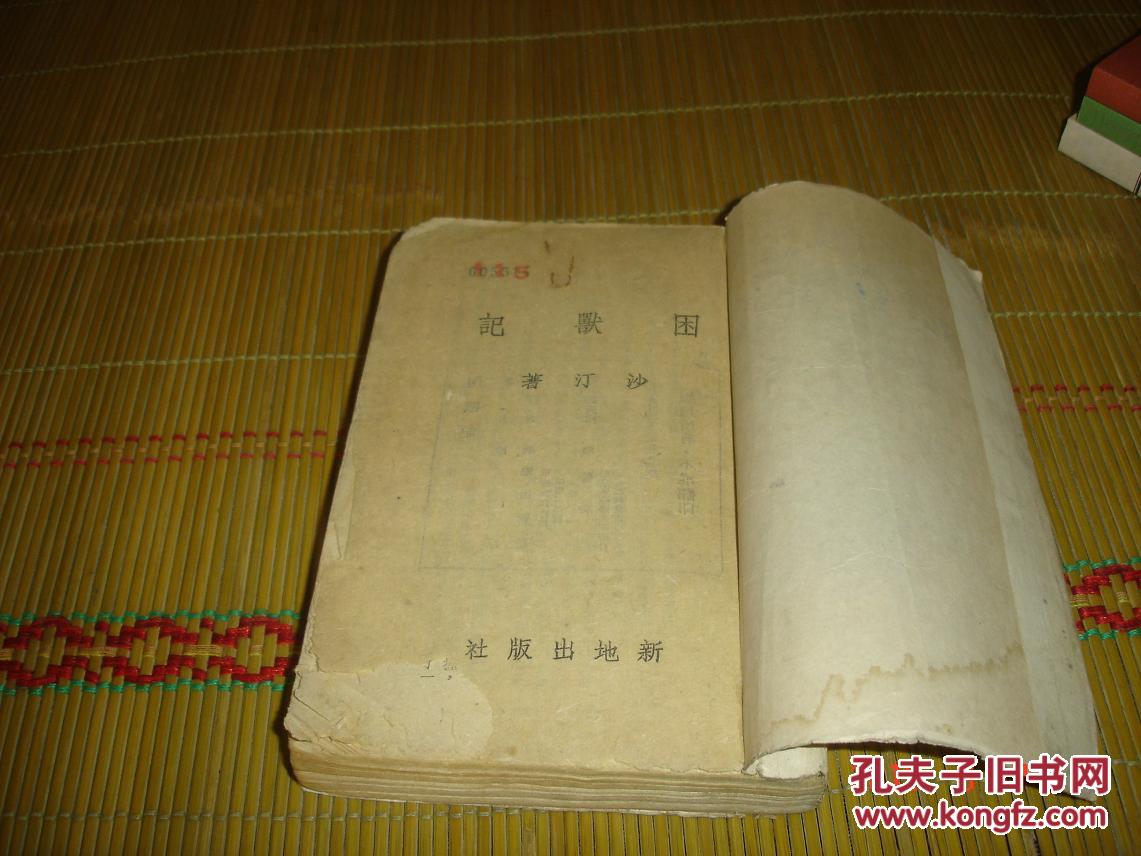 115
困獸記
沙汀著
新地出版社
孔夫子旧书网
www.kongfz.com